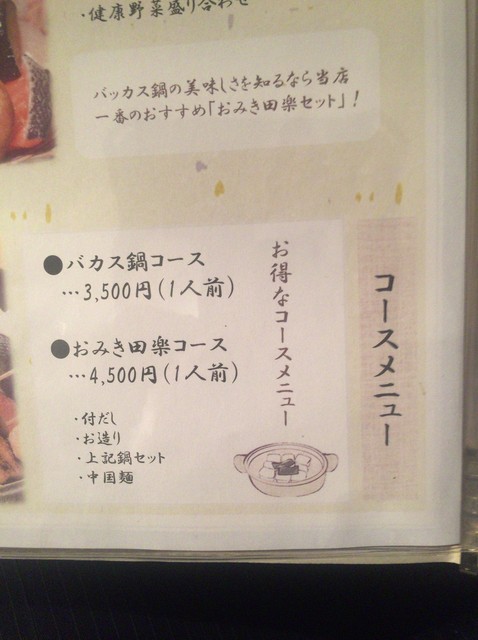 ・健康野菜盛り合わせ
バッカス鍋の美味しさを知るなら当店
一番のおすすめ「おみき田楽セット」！
コースメニュー
お得なコースメニュー
●バカス鍋コース
…3,500円(1人前)
●おみき田楽コース
…4,500円(1人前)
・付だし
・お造り
・上記鍋セット
・中国麺